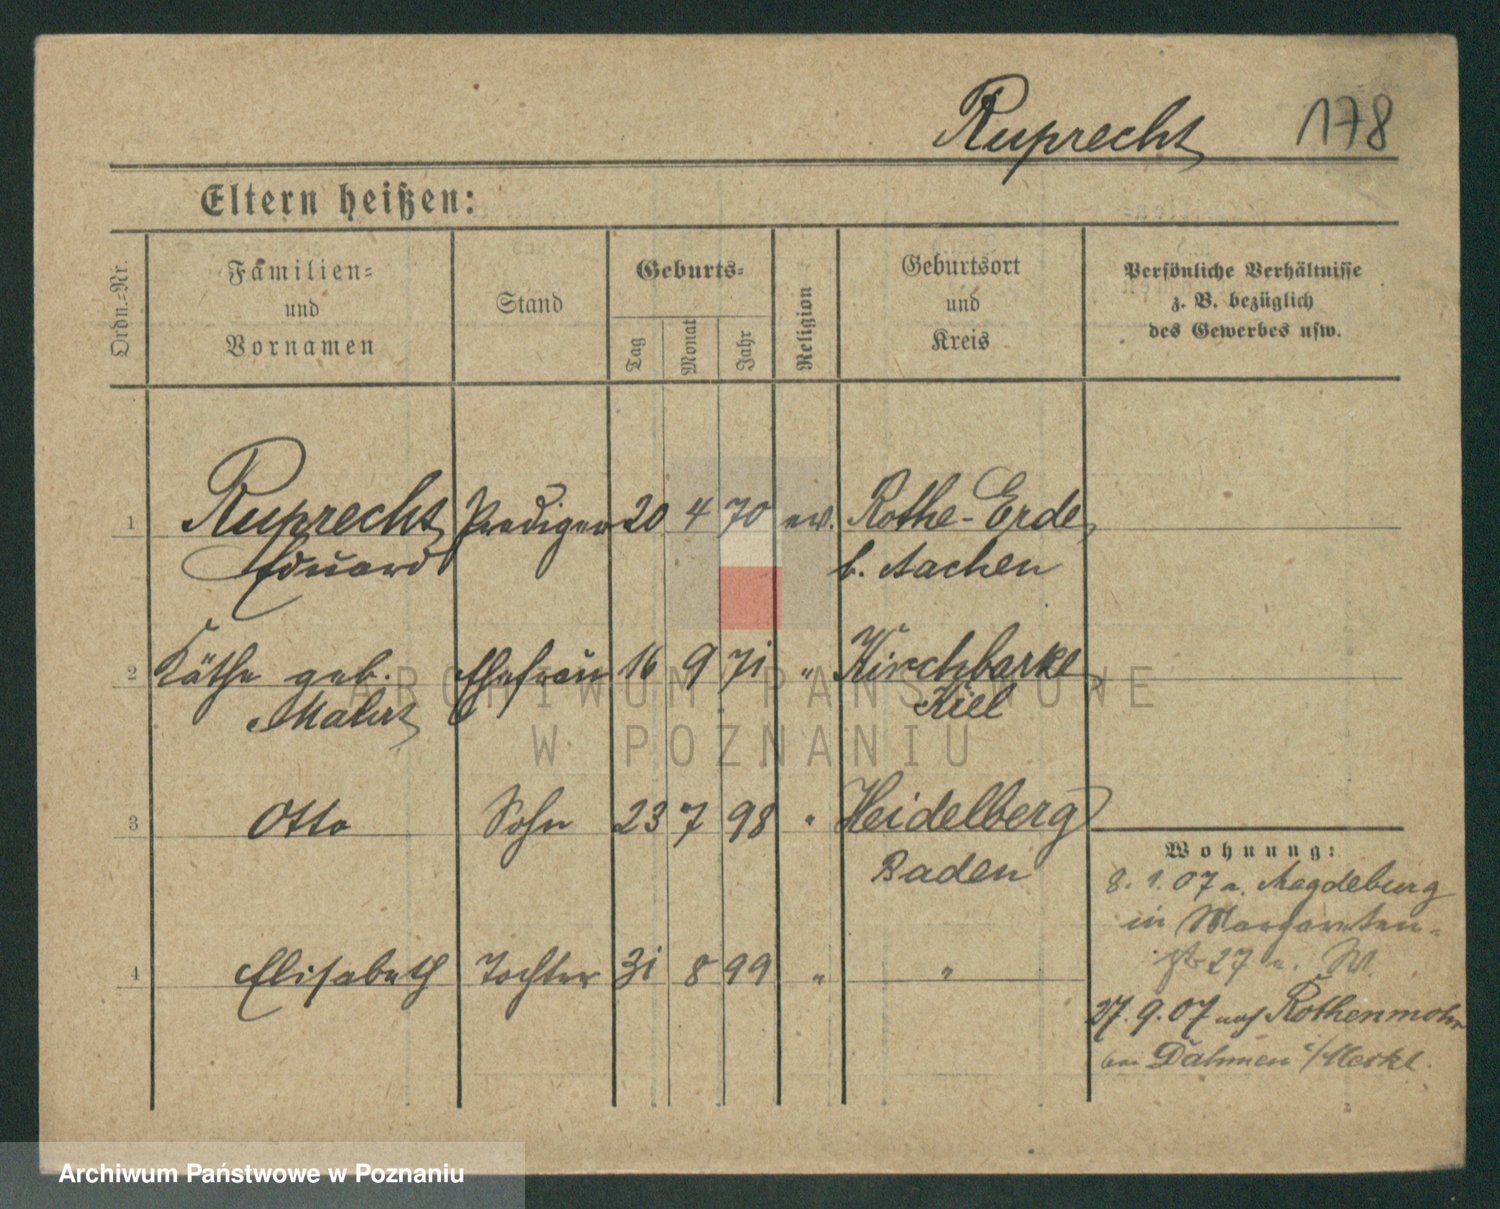 Ruprecht 178
Eltern heißen:
Ordn.-Nr.
Familien-
und
Vornamen
Stand
Geburts-
Tag
Monat
Jahr
Religion
Geburtsort
und
Kreis
Persönliche Verhältnisse
z. B. bezüglich
des Gewerbes usw.
1 Ruprecht Prediger 20 4 70 ev. Rothe-Erde
Eduard b. Aachen
2 Käthe geb. Ehefrau 16 9 71 " Kirchbarke
Mahrt Kiel
3 Otto Sohn 23 7 98 " Heidelberg
Baden
4 Elisabeth Tochter 31 8 99 " "
Wohnung:
8. 1. 07 a. Magdeburg
in Margareten-
27
27. 9. 07 auf Rothenmohr
Dahmen i/Meckl.
ARCHIWUM PAŃSTWOWE
W POZNANIU
Archiwum Państwowe w Poznaniu